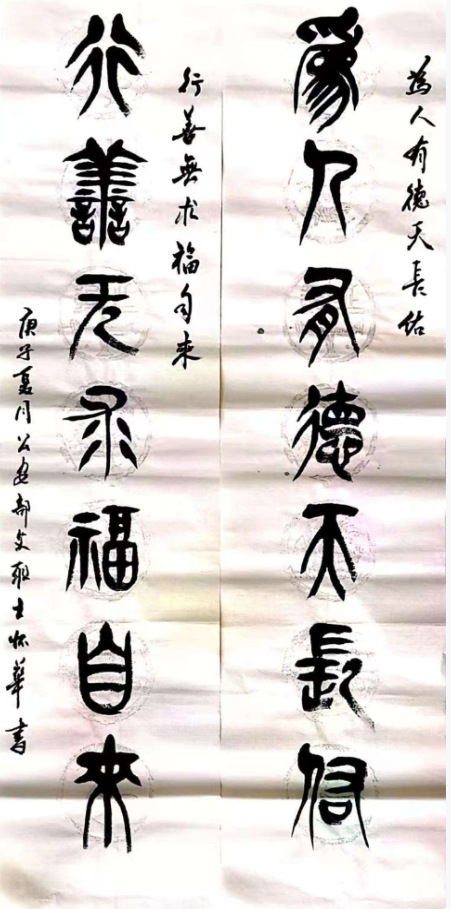 為人有德天長佑
為人有德天長佑
行善無求福自来
行善无求福自來
庚子夏月公安部文联士怀華書